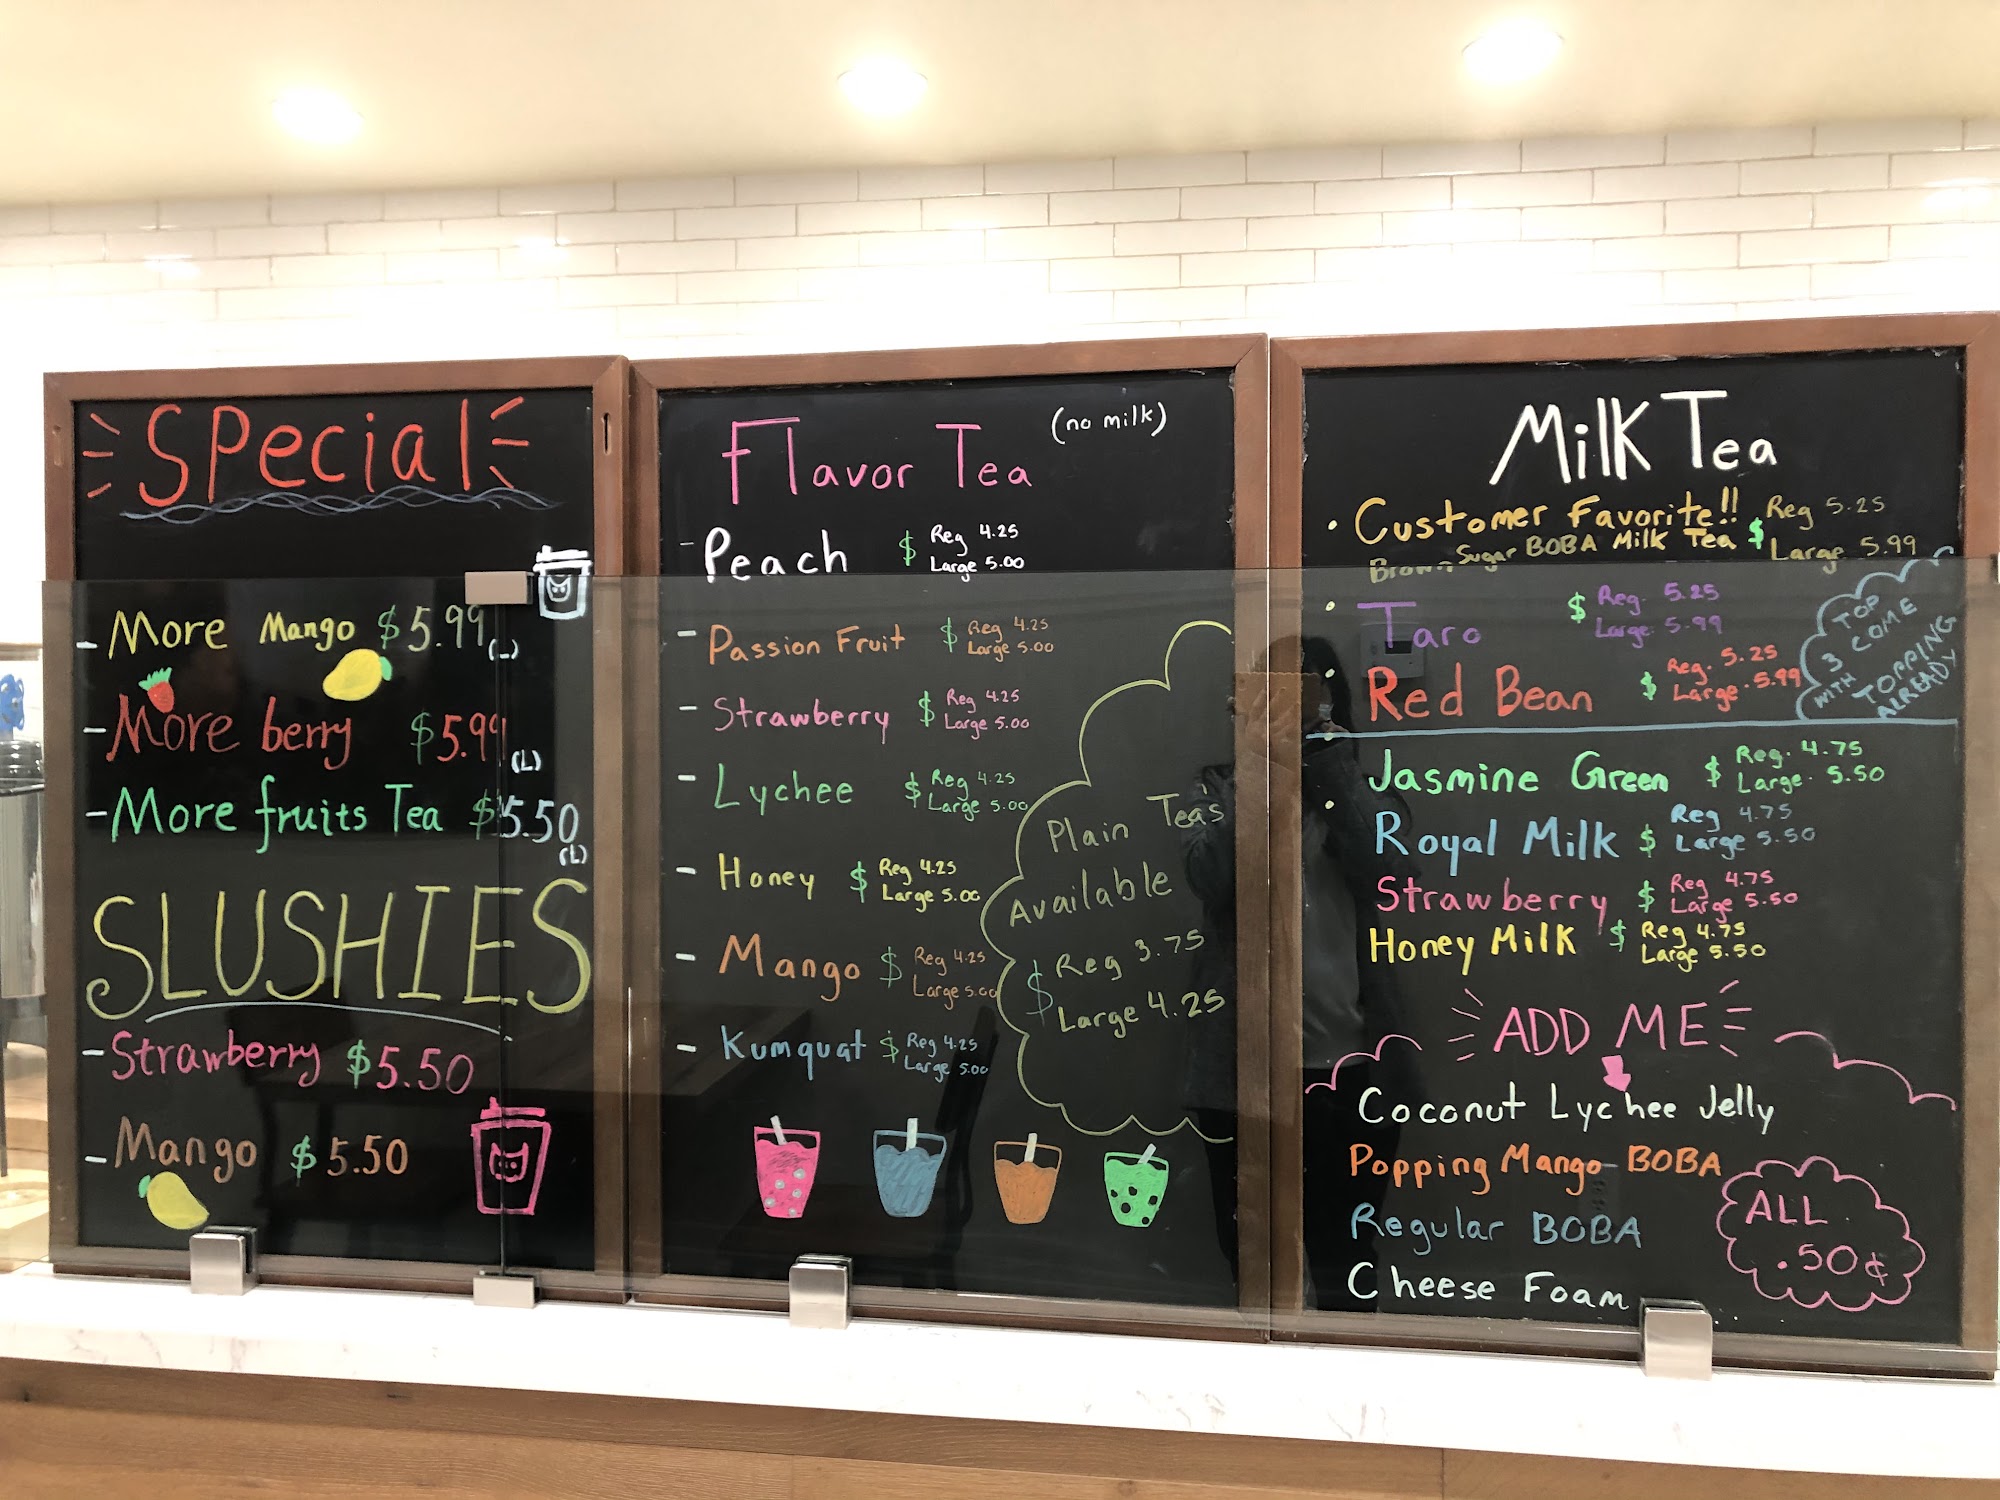 Special
- More Mango $5.99 (L)
- More berry $5.99 (L)
- More fruits Tea $5.50 (L)
SLUSHIES
- Strawberry $5.50
- Mango $5.50
Flavor Tea (no milk)
- Peach $ Reg 4.25
Large 5.00
- Passion Fruit $ Reg 4.25
Large 5.00
- Strawberry $ Reg 4.25
Large 5.00
- Lychee $ Reg 4.25
Large 5.00
- Honey $ Reg 4.25
Large 5.00
- Mango $ Reg 4.25
Large 5.00
- Kumquat $ Reg 4.25
Large 5.00
Plain Tea's
Available
$ Reg 3.75
Large 4.25
Milk Tea
• Customer Favorite!! $ Reg 5.25
Brown Sugar BOBA Milk Tea Large 5.99
• Taro $ Reg. 5.25
Large. 5.99
• Red Bean $ Reg. 5.25
Large. 5.99
TOP
3 COME
WITH TOPPING
ALREADY
• Jasmine Green $ Reg. 4.75
Large. 5.50
• Royal Milk $ Reg 4.75
Large 5.50
Strawberry $ Reg 4.75
Large 5.50
Honey Milk $ Reg 4.75
Large 5.50
ADD ME
Coconut Lychee Jelly
Popping Mango BOBA
Regular BOBA
Cheese Foam
ALL
.50¢